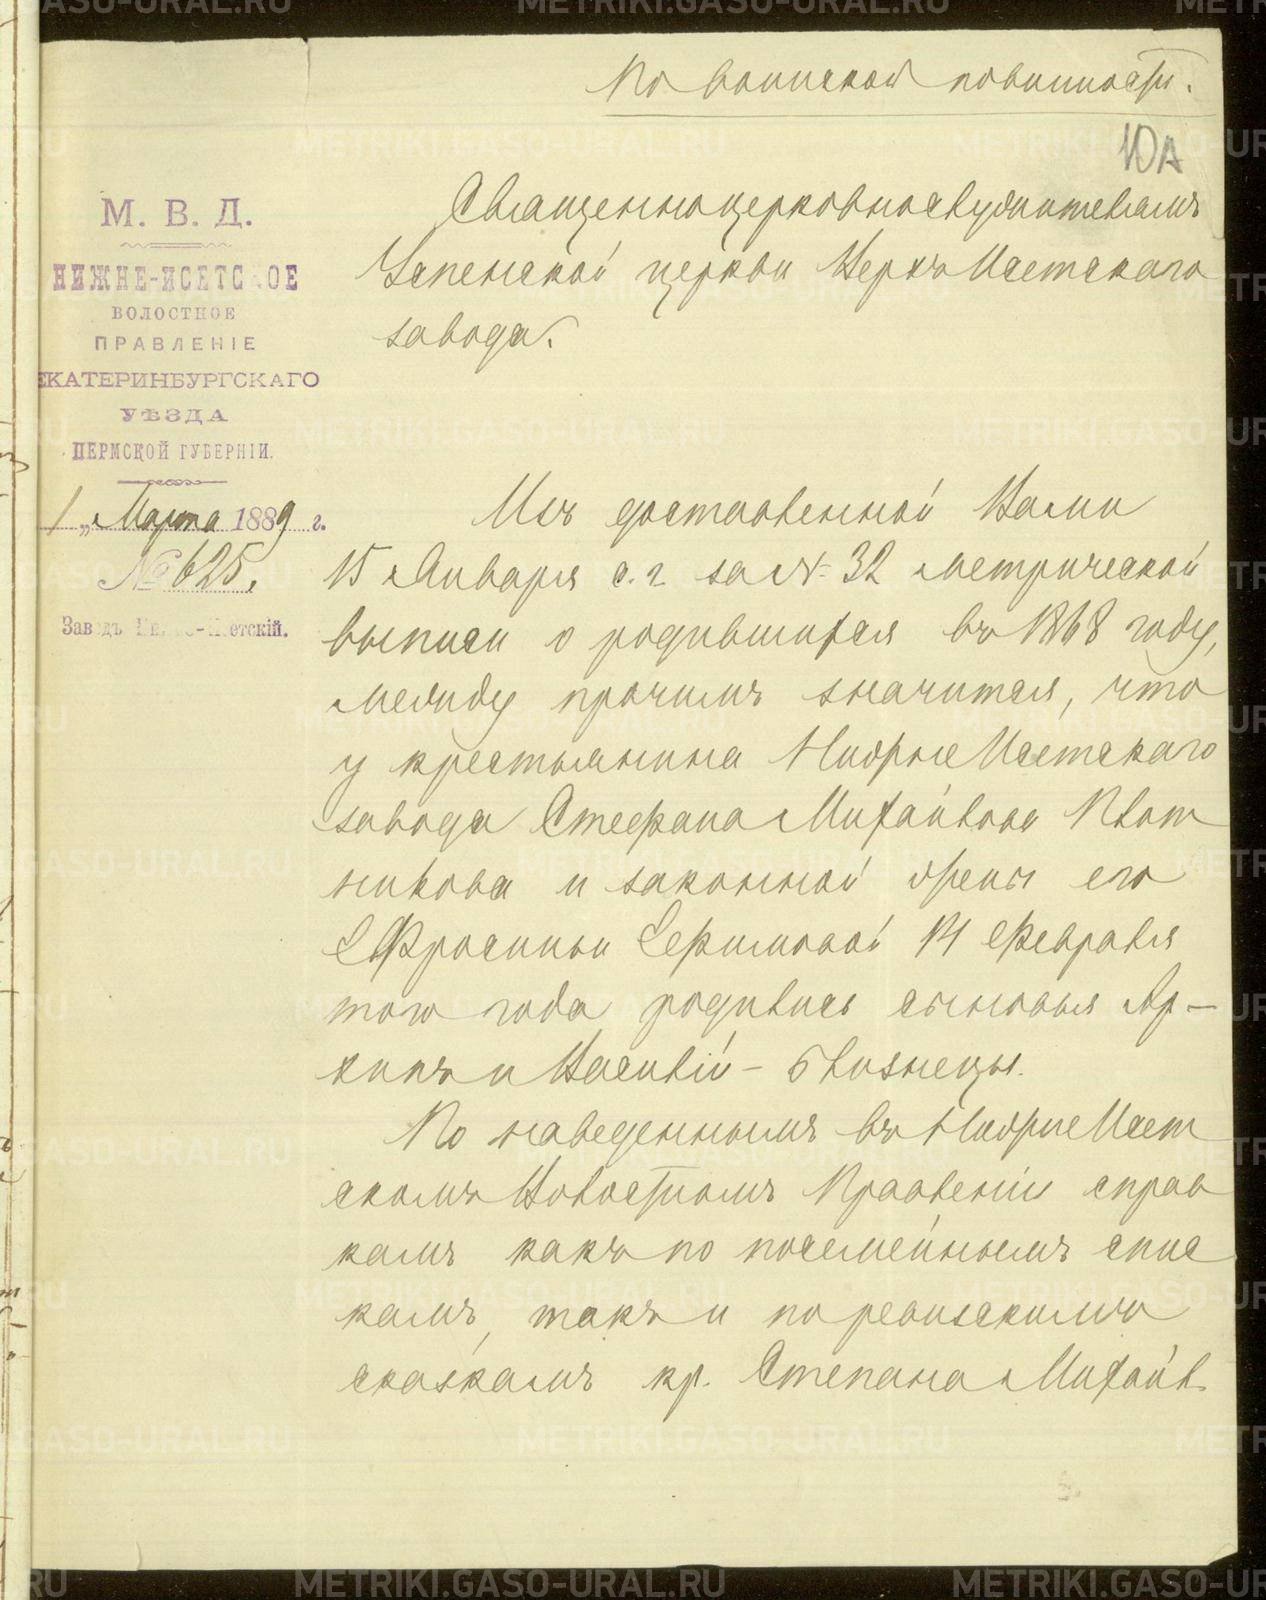 По воинской повинности.
10А
М. В. Д.
НИЖНЕ-ИСЕТСКОЕ
ВОЛОСТНОЕ
ПРАВЛЕНІЕ
ЕКАТЕРИНБУРГСКАГО
УѢЗДА
ПЕРМСКОЙ ГУБЕРНІИ.
1 „ Марта 1889 г.
№ 625.
Заводъ Нижне-Исетскій.
Священноцерковнослужителямъ
Успенской церкви Верхъ Исетскаго
завода.
Изъ доставленной Вами
15 Января с. г. за № 32 метрической
выписи о родившихся въ 1868 году,
между прочимъ значится, что
у крестьянина Нижне Исетскаго
завода Стефана Михайлова Плот
никова и законной жены его
Ефросиньи Ефимовой 14 Февраля
того года родились сыновья Ар-
хипъ и Василій - близнецы.
По наведеннымъ въ Нижне Исет
скомъ Волостномъ Правленіи справ
камъ какъ по посемейнымъ спис
камъ, такъ и по ревизскимъ
сказкамъ кр. Степана Михайл.
METRIKI.GASO-URAL.RU